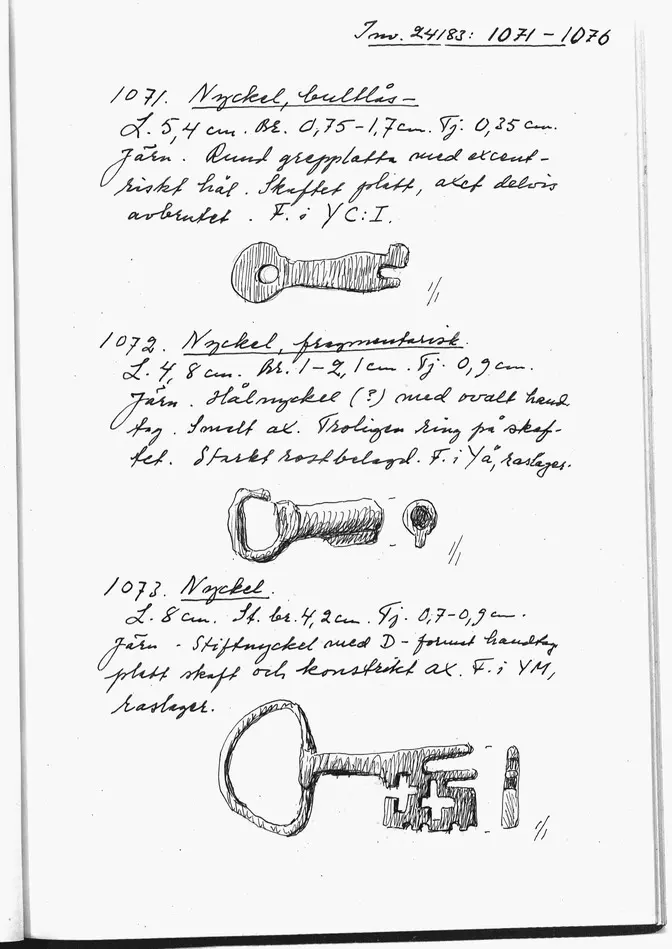 Inv. 24183: 1071 – 1076
1071. Nyckel, bultlås –
L. 5,4 cm. Br. 0,75 – 1,7 cm. Tj. 0,35 cm.
Järn. Rund greppplatta med excent-
riskt hål. Skaftet platt, axet delvis
avbrutet. F. i YC:I.
1/1
1072. Nyckel, fragmentarisk.
L. 4,8 cm. Br. 1 – 2,1 cm. Tj. 0,9 cm.
Järn. Hålnyckel (?) med ovalt hand
tag. Smalt ax. Troligen ring på skaf-
tet. Starkt rostbelagd. F. i YÄ, raslager.
1/1
1073. Nyckel.
L. 8 cm. St. br. 4,2 cm. Tj. 0,7–0,9 cm.
Järn – Stiftnyckel med D – format handtag
platt skaft och konstrikt ax. F. i YM,
raslager.
1/1